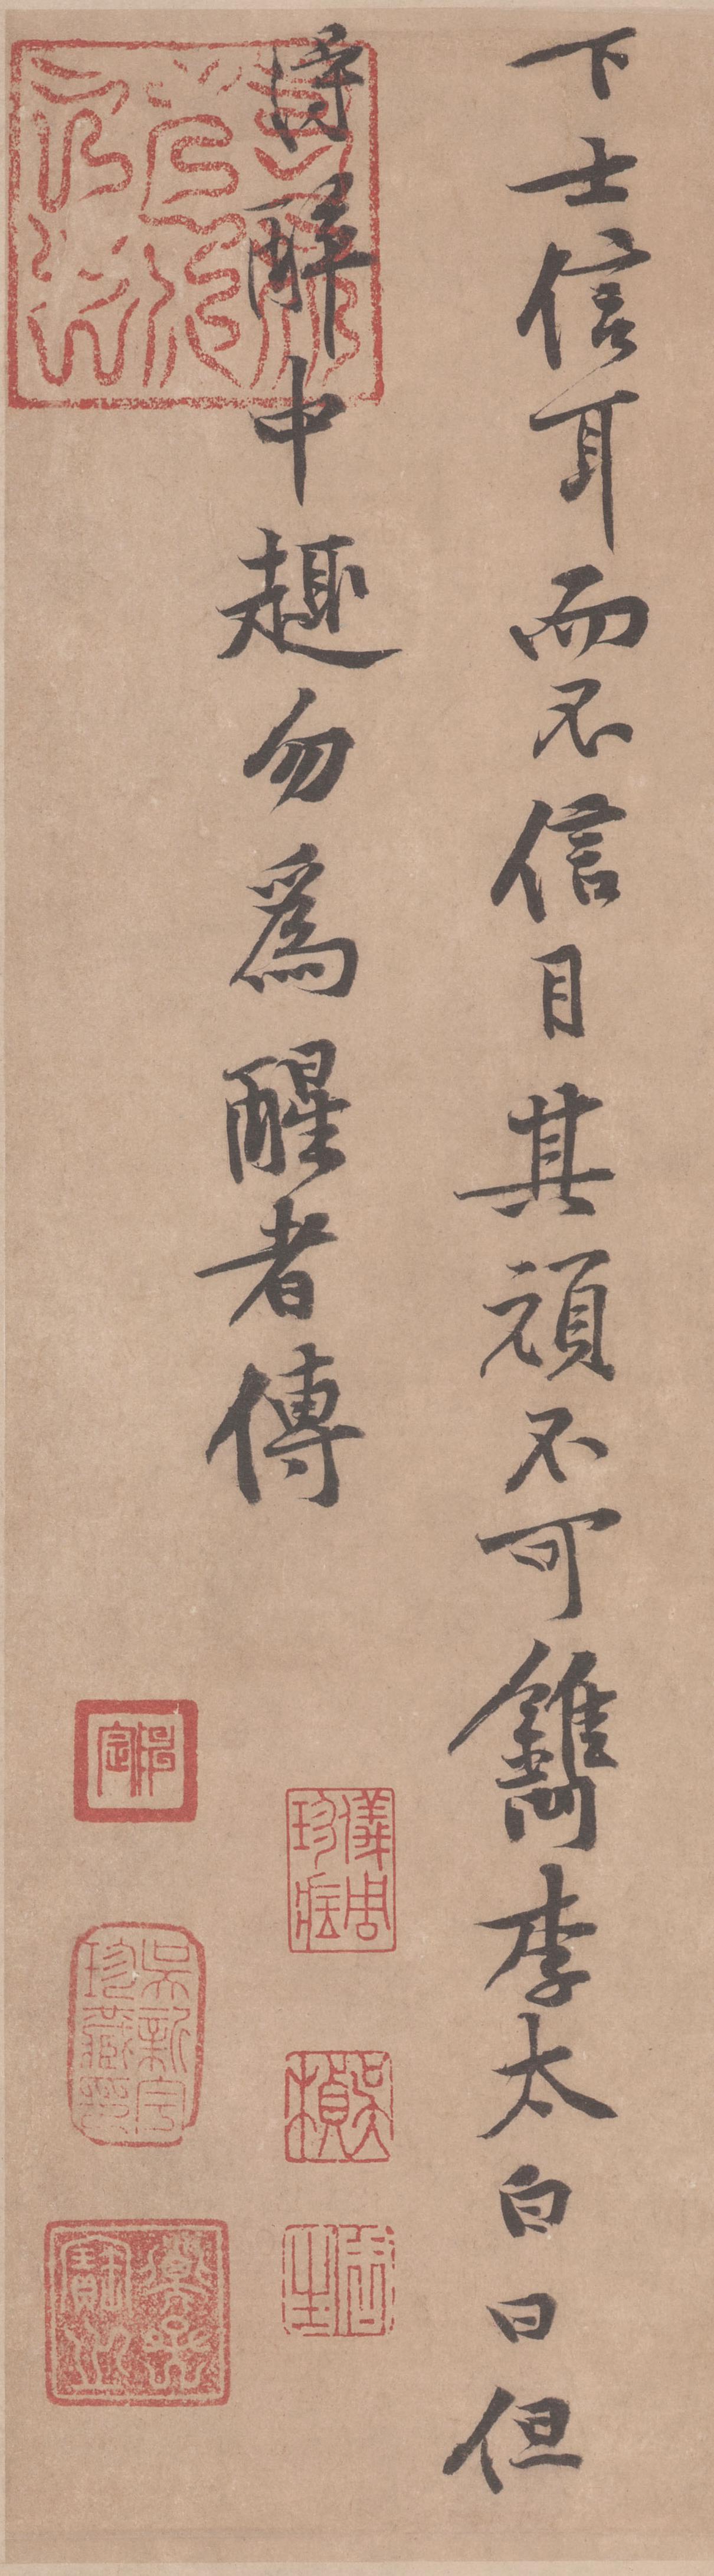 下士信耳而不信目其頑不可鐫李太白曰但
得醉中趣勿為醒者傳
儀周珍藏
吳楨